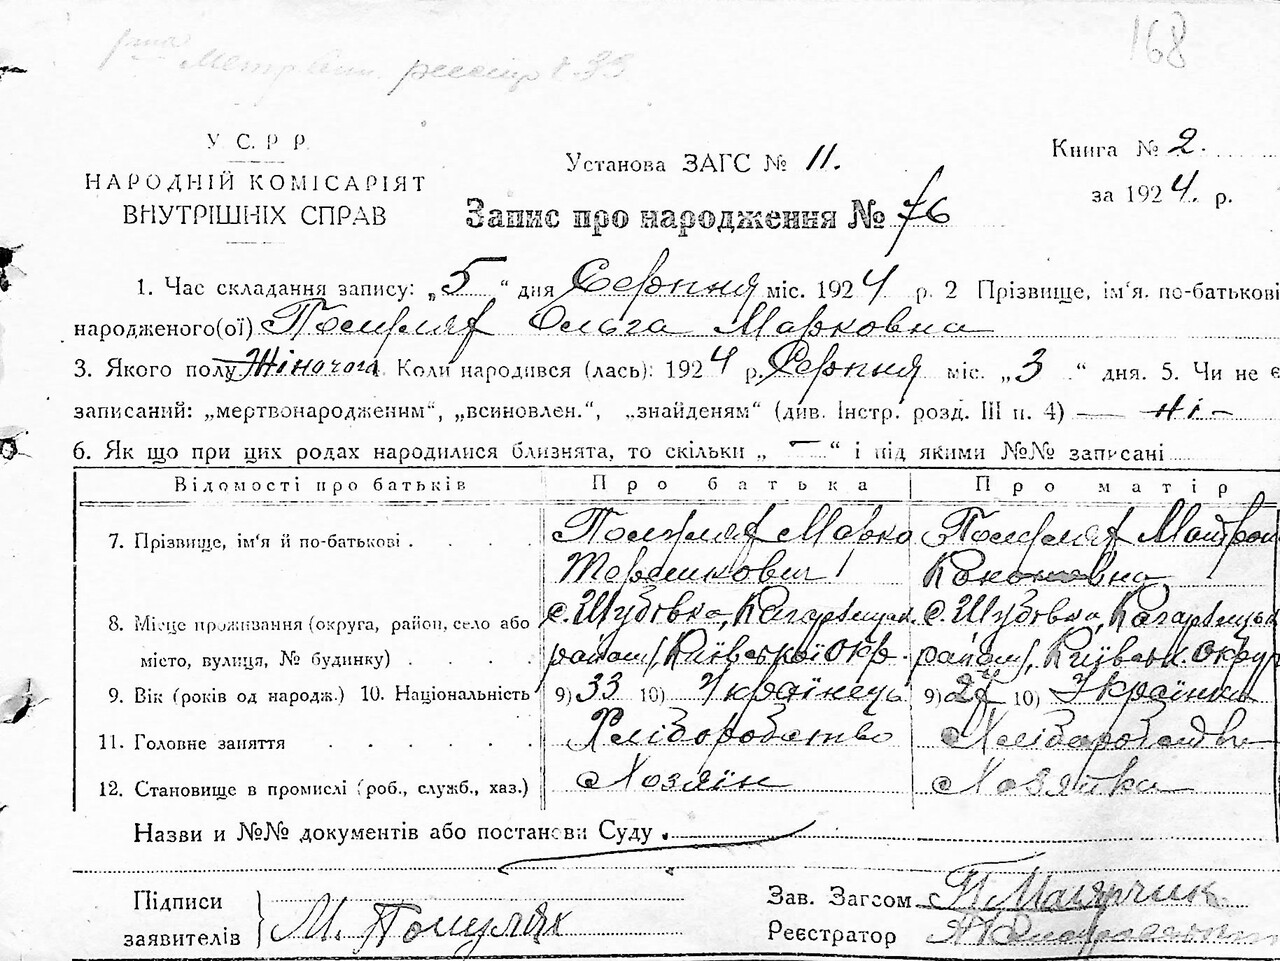 168
У. С. Р. Р.
НАРОДНІЙ КОМІСАРІЯТ
ВНУТРІШНІХ СПРАВ
Установа ЗАГС № 11.
Запис про народження № 76
Книга № 2.
за 1924 р.
1. Час складання запису: „5“ дня Серпня міс. 1924 р. 2 Прізвище, ім'я. по-батькові
народженого(ої) Помулях Ольга Марковна
3. Якого полу Жіночого Коли народився (лась): 1924 р. Серпня міс. „3“ дня. 5. Чи не є
записаний: „мертвонародженим“, „всиновлен.“, „знайденям“ (див. Інстр. розд. III п. 4) — ні —
6. Як що при цих родах народилися близнята, то скільки „—“ і під якими №№ записані
Відомості про батьків Про батька Про матір
7. Прізвище, ім'я й по-батькові Помулях Марко Помулях Мотрона
8. Місце проживання (округа, район, село або с. Шубовка, Кагарлицьк. с. Шубовка, Кагарлицьк
місто, вулиця, № будинку) району, Київської окр. району, Київськ. округ
9. Вік (років од народж.) 10. Національність 9) 33 10) Українець 9) 10) Українка
11. Головне заняття Хліборобство Хліборобство
12. Становище в промислі (роб., служб., хаз.) Хозяїн Хозяйка
Назви и №№ документів або постанови Суду.
Підписи
заявителів М. Помулях
Зав. Загсом
Реєстратор